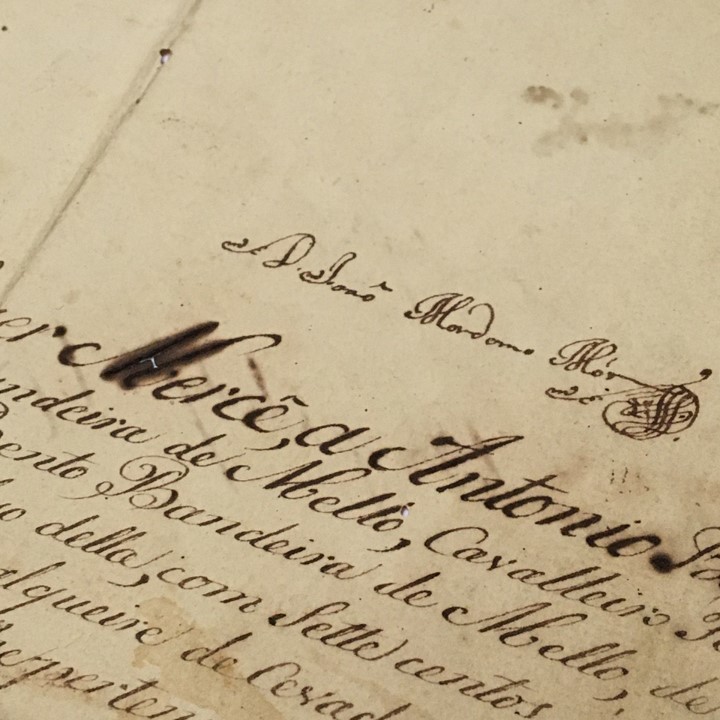 D. João Mordomo Mór
er Mercê, a Antonio
ndeira de Mello, Cavalleiro
ento Bandeira de Mello, de
o della, com Sette centos
alqueire de Cevad
perten